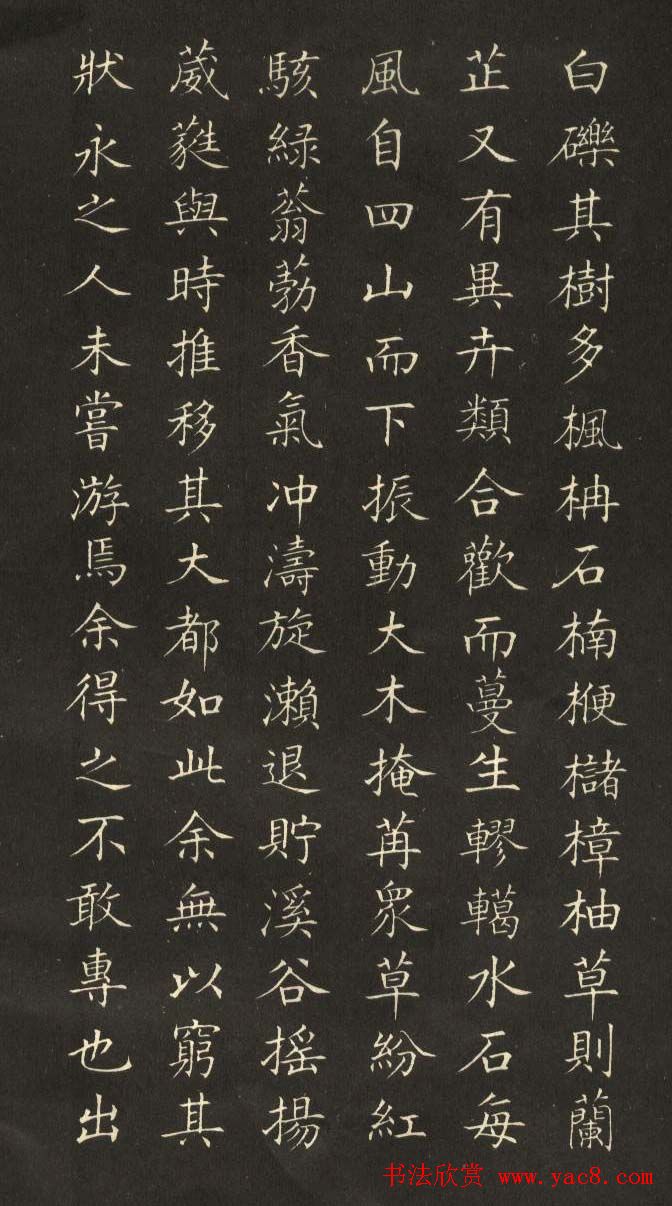 白礫其樹多楓枏石楠楩櫧樟柚草則蘭
芷又有異卉類合歡而蔓生轇轕水石每
風自四山而下振動大木掩苒眾草紛紅
駭綠蓊勃香氣冲濤旋瀨退貯溪谷搖揚
葳蕤與時推移其大都如此余無以窮其
狀永之人未嘗游焉余得之不敢專也出
书法欣赏 www.yac8.com